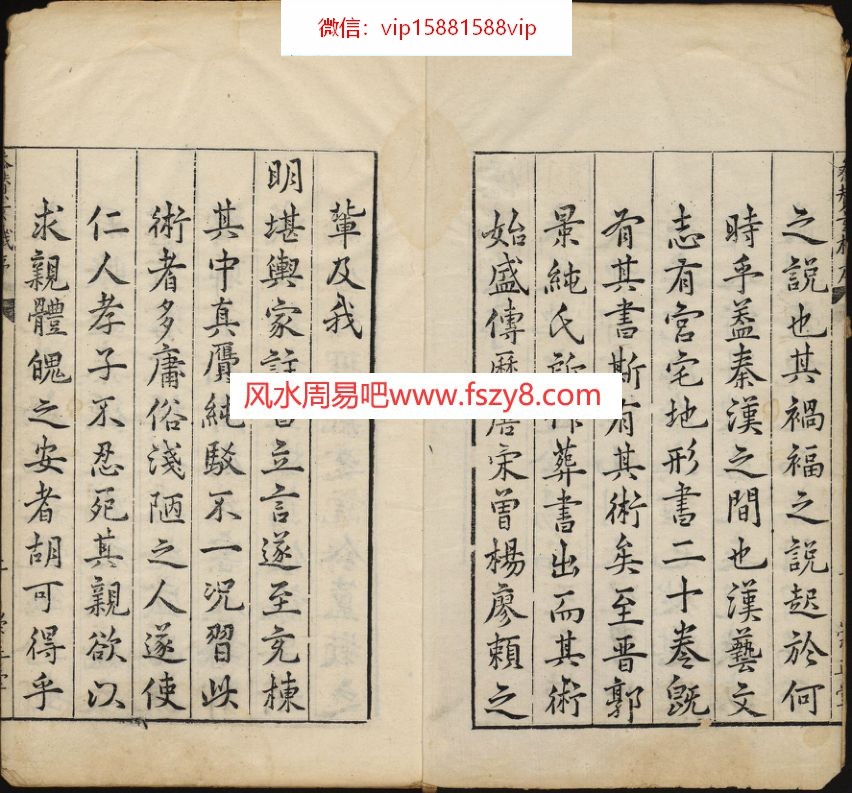 微信：vip15881588vip
之說也其禍福之說起於何
時乎葢秦漢之間也漢藝文
志有宮宅地形書二十卷旣
有其書斯有其術矣至晉郭
景純氏所作葬書出而其術
始盛傳曆唐宋曾楊廖賴之
輩及我
明堪輿家註書立言遂至充棟
其中真贋純駁不一况習此
術者多庸俗淺陋之人遂使
仁人孝子不忍死其親欲以
求親體魄之安者胡可得乎
风水周易吧www.fszy8.com